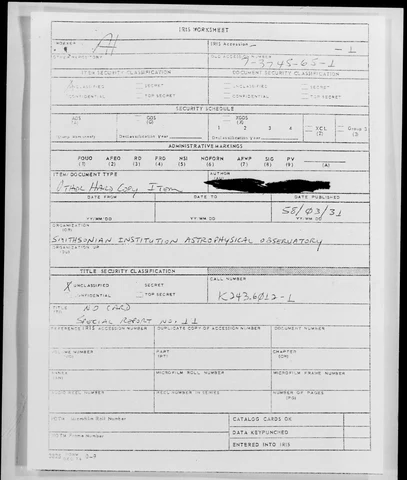 IRIS WORKSHEET
WORKER
IRIS Accession
-1
A1
OLD ACCESSION NUMBER
7-3745-65-1
ITEM SECURITY CLASSIFICATION
DOCUMENT SECURITY CLASSIFICATION
UNCLASSIFIED
SECRET
UNCLASSIFIED
SECRET
CONFIDENTIAL
TOP SECRET
CONFIDENTIAL
TOP SECRET
SECURITY SCHEDULE
ADS
GDS
XGDS
1 2 3 4
XCL
Group 3
Declassification Year
Declassification Year
ADMINISTRATIVE MARKINGS
FOUO AFEO RD FRD NSI NOFORN AFWP SIG PV
(1) (2) (3) (4) (5) (6) (7) (8) (9) (A)
ITEM/DOCUMENT TYPE
AUTHOR
OTHER HARD COPY ITEM
DATE FROM
DATE TO
DATE PUBLISHED
58/03/31
YY/MM/DD
YY/MM/DD
YY/MM/DD
ORGANIZATION
SMITHSONIAN INSTITUTION ASTROPHYSICAL OBSERVATORY
ORGANIZATION
TITLE SECURITY CLASSIFICATION
CALL NUMBER
X UNCLASSIFIED
SECRET
CONFIDENTIAL
TOP SECRET
K243.6012-1
TITLE
NO CARD
SPECIAL REPORT NO. 11
REFERENCE IRIS ACCESSION NUMBER
DUPLICATE COPY OF ACCESSION NUMBER
DOCUMENT NUMBER
VOLUME NUMBER
PART
CHAPTER
MICROFILM ROLL NUMBER
MICROFILM FRAME NUMBER
AUDIO REEL NUMBER
REEL NUMBER IN SERIES
NUMBER OF PAGES
Microfilm Roll Number
CATALOG CARDS OK
DATA KEYPUNCHED
Frame Number
ENTERED INTO IRIS